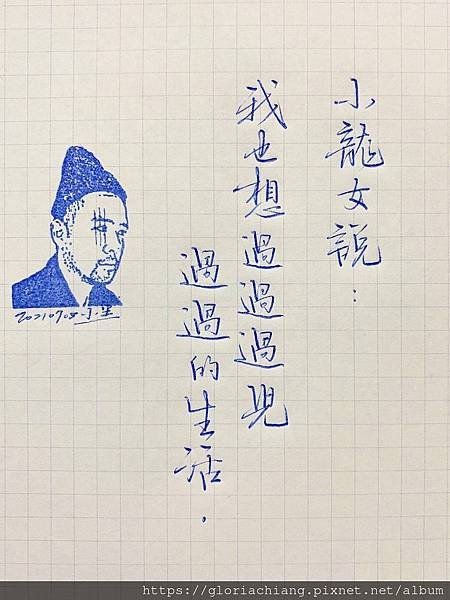 小龍女說：
我也想過過過兒
過過的生活．
20210708 小生
https://gloriachiang.pixnet.net/album